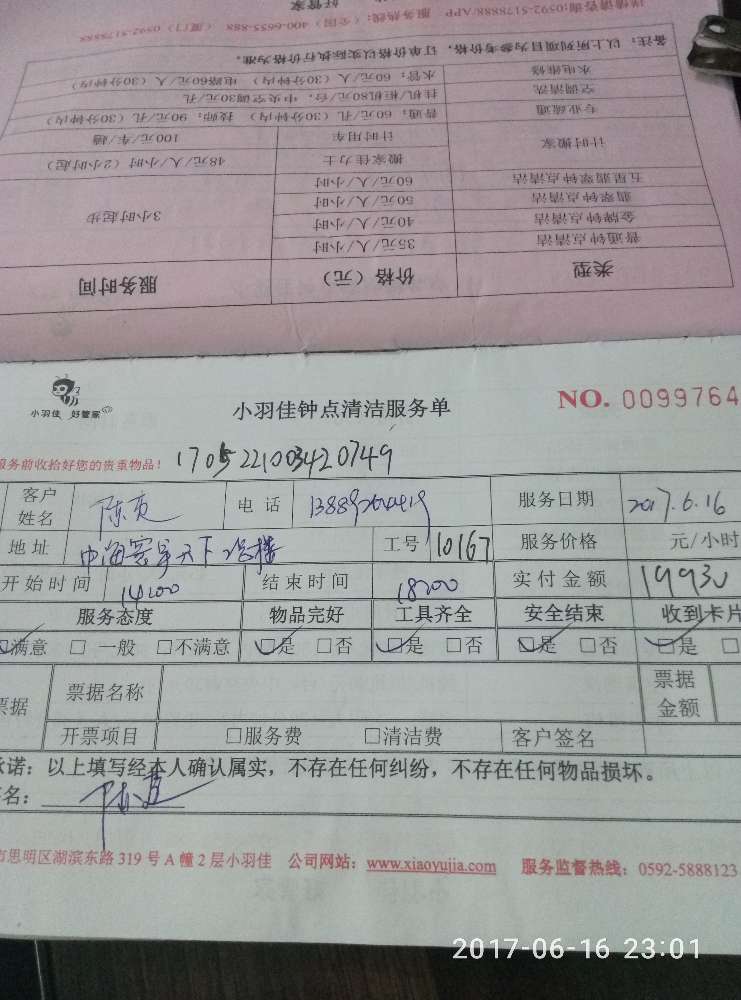 详情请咨询:0592-5178888/APP 服务热线:(全国)400-6655-888 (厦门)0592-5178888
备注:以上所列项目为参考价格,订单价格以实际执行价格为准。
类型 价格(元) 服务时间
普通钟点清洁 35元/人/小时 3小时起步
金牌钟点清洁 40元/人/小时
翡翠钟点清洁 50元/人/小时
五星翡翠钟点清洁 60元/人/小时
计时搬家 搬家佳力士 48元/人/小时(2小时起)
计时用车 100元/车/趟
专业疏通 普通:60元/孔(30分钟内) 技师:90元/孔(30分钟内)
空调清洗 挂机/柜机80元/台,中央空调30元/孔
水电维修 水管:60元/人(30分钟内) 电路60元/人(30分钟内)
小羽佳 好管家
小羽佳钟点清洁服务单
NO. 0099764
服务前收拾好您的贵重物品! 1705221003420749
客户姓名 电话 服务日期 2017.6.16
地址 中海寰宇天下 工号 10167 服务价格 元/小时
开始时间 14:00 结束时间 18:00 实付金额
服务态度 物品完好 工具齐全 安全结束 收到卡片
满意 □一般 □不满意 是 □否 是 □否 是 □否 是 □
票据 票据名称 票据金额
开票项目 □服务费 □清洁费 客户签名
承诺:以上填写经本人确认属实,不存在任何纠纷,不存在任何物品损坏。
名:
市思明区湖滨东路319号A幢2层小羽佳 公司网站:www.xiaoyujia.com 服务监督热线:0592-5888123
2017-06-16 23:01